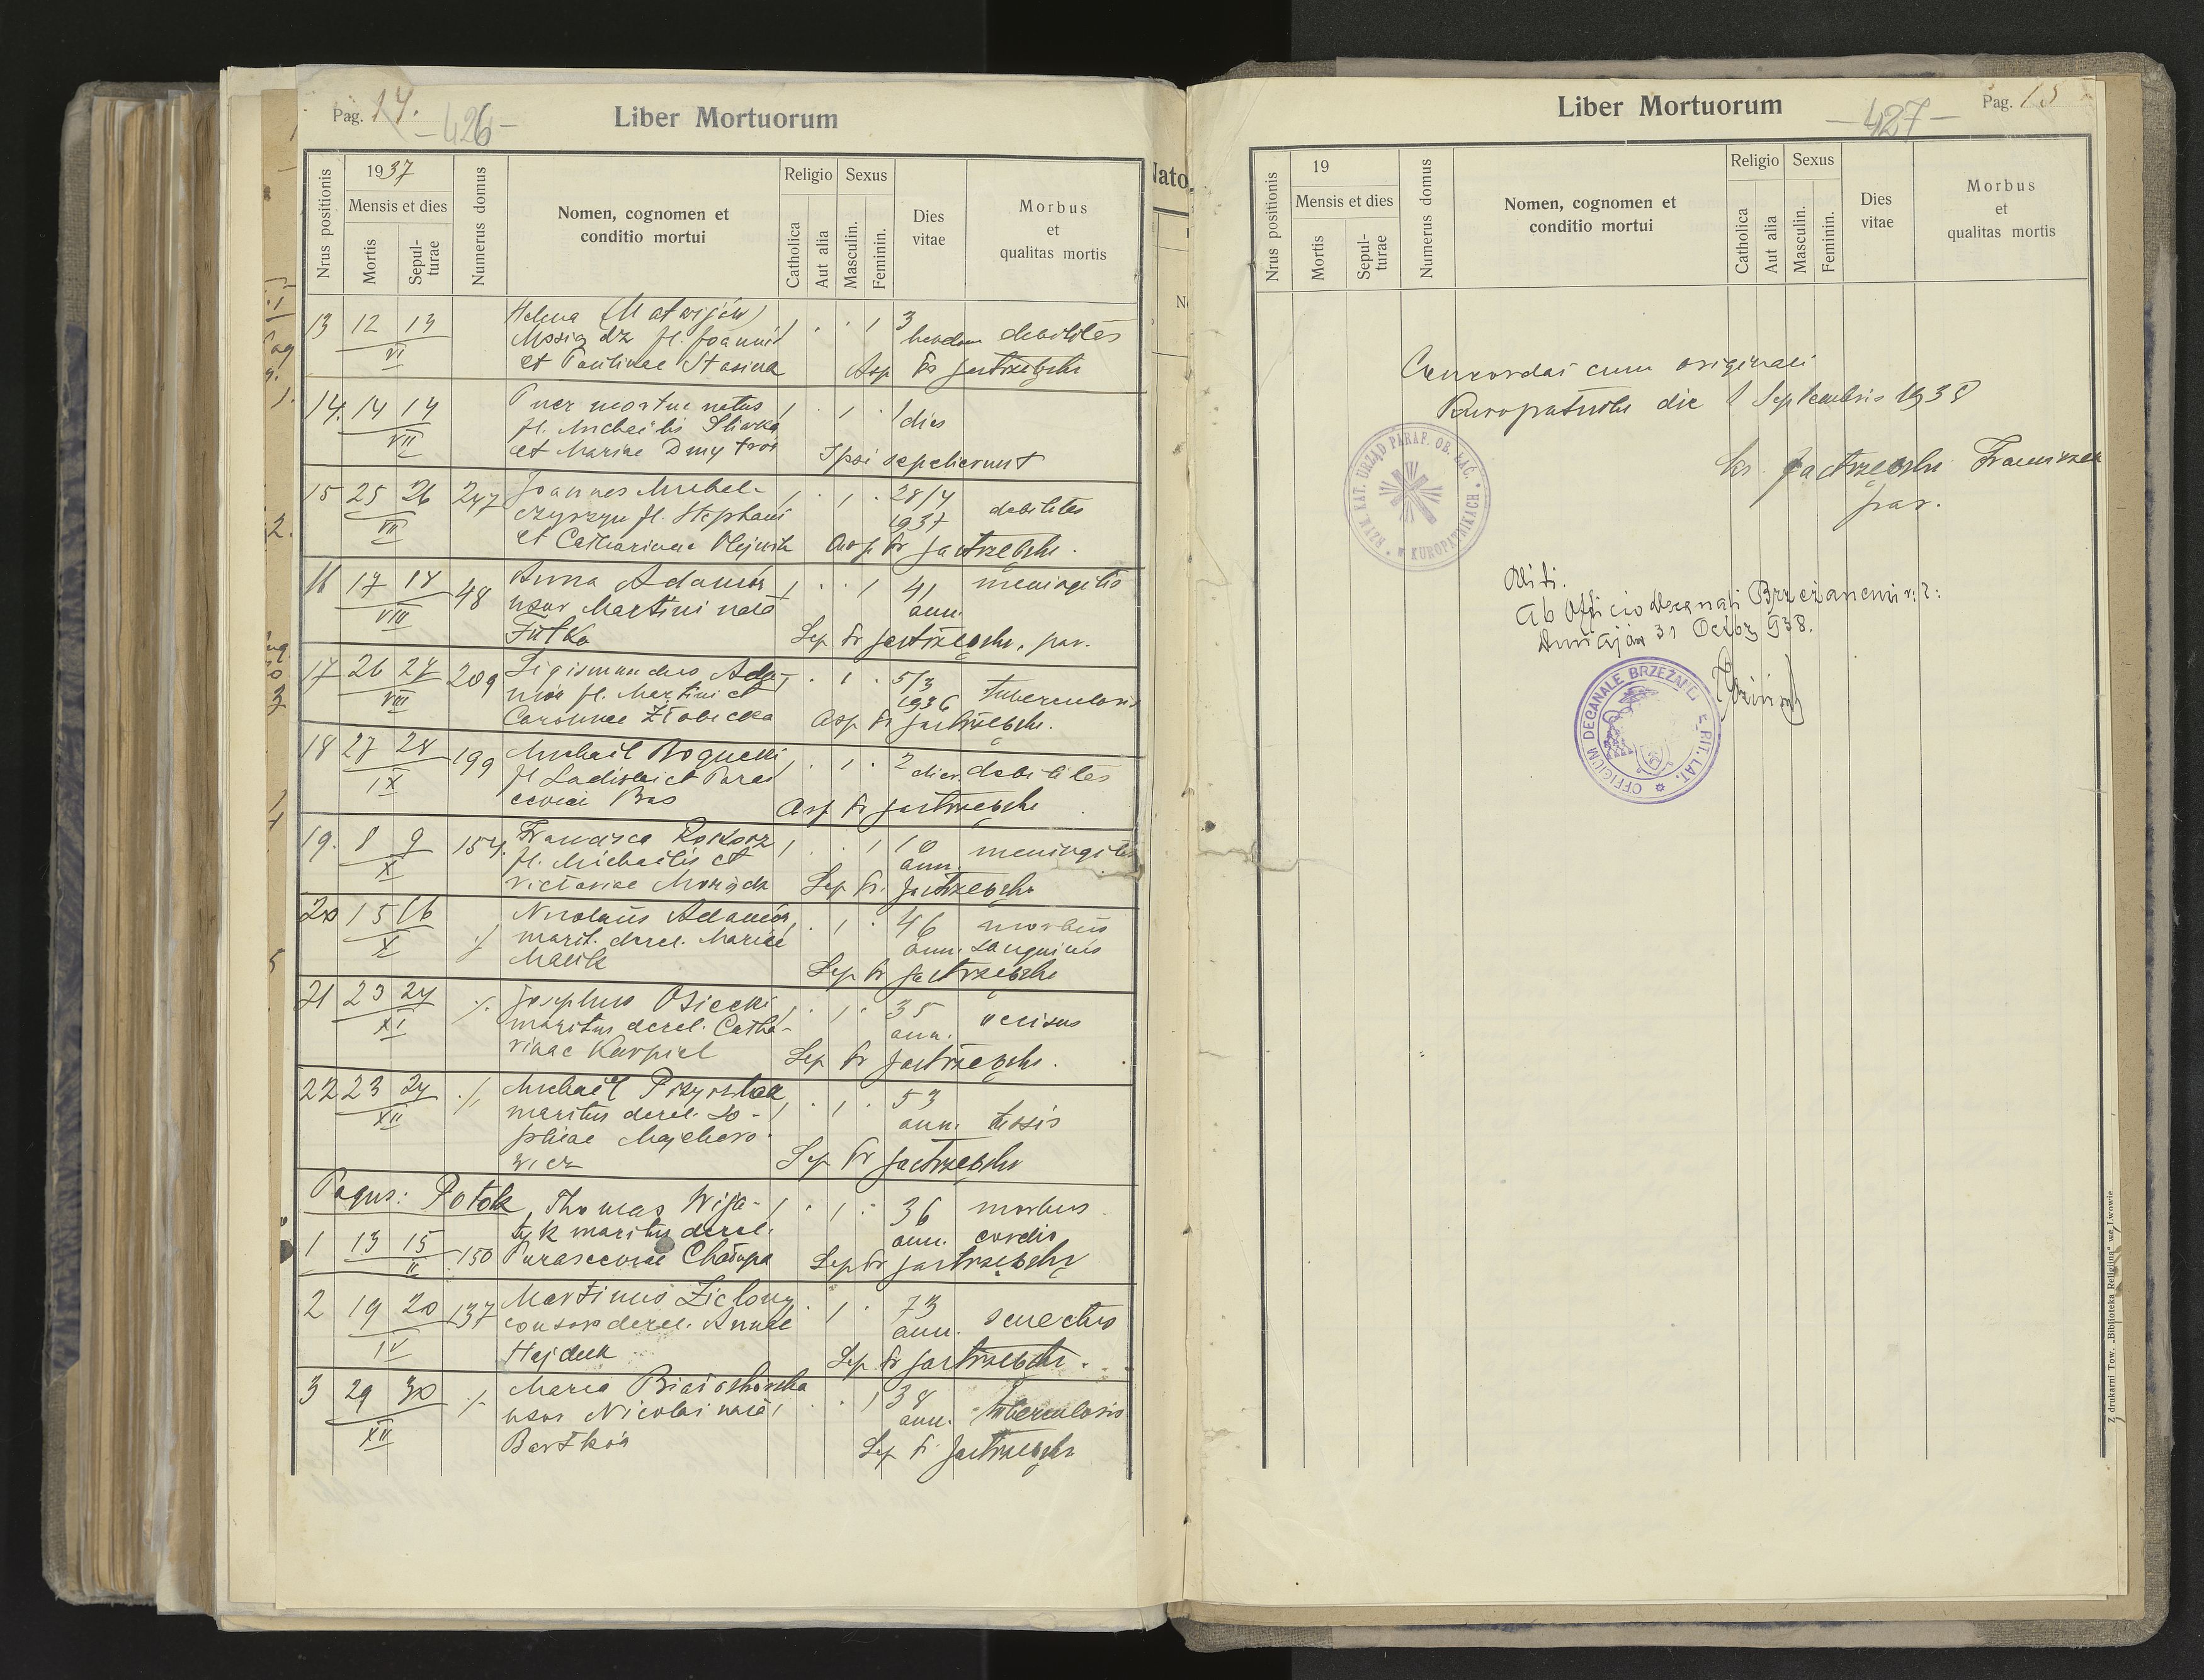 Pag. 14.
- 426 -
Liber Mortuorum
Nrus positionis
1937
Mensis et dies
Mortis
Sepul-
turae
Numerus domus
Nomen, cognomen et
conditio mortui
Religio
Catholica
Aut alia
Sexus
Masculin.
Feminin.
Dies
vitae
Morbus
et
qualitas mortis
13 12 13 Helena (Matwijów) 1 . . 1 3
VI fl. Joannis hebdom debilitas
et Paulinae Stasina Asp Fr Jastrzębski
14. 14 14 Puer mortuu natus 1 . 1 . 1
VII fl. Michaelis Sliwka dies
et Mariae Dmytrów Ipsi sepelierunt
15 25 26 247 Joannes Michal- 1 . 1 . 28/4
VII czyszyn fl. Stephani 1937 debilitas
et Catharinae Olejnik Asp Fr Jastrzębski.
16 17 18 48 Anna Adamów 1 . . 1 41 meningitis
VIII uxor Martini nata ann.
Futka Sep Fr Jastrzębski, par.
17 26 27 209 Sigismundus Ada- 1 . 1 . 5/3
VIII mów fl. Martini et 1936 tuberculosis
Carolinae Żłobicka Asp Fr Jastrzębski.
18 27 28 199 Michaël Rogucki 1 . 1 . 2
IX fl Ladislai et Paras dies debilitas
ceviae Bas Asp Fr Jastrzębski
19. 8 9 154. Francisca Kokosz 1 . . 1 10
X fl. Michaëlis et ann. meningitis
Victoriae Sep Fr. Jastrzębski
20 15 16 ./. Nicolaus Adamów 1 . 1 . 46 morbus
X marit. derel. Mariae ann. sanguinis
Macik Sep Fr Jastrzębski
21 23 24 ./. Josephus Osiecki 1 . 1 . 35
XI maritus derel. Catha- ann. occisus
rinae Karpiel Sep Fr Jastrzębski.
22 23 24 ./. Michaël Przyszlak
XII maritus derel. So- 1 . 1 . 53
phiae Majchro- ann. tussis
wicz Sep Fr Jastrzębski
Pagus: Potok Thomas Wija- 1 . 1 . 36 morbus
1 13 15 150 tyk maritus derel. ann. cordis
II Parasceviae Chałupa Sep Fr Jastrzębski
2 19 20 137 Martinus Zielony 1 . 1 . 73
IV consors derel. Annae ann. senectus
Hajduk Sep Fr Jastrzębski.
3 29 30 ./. Maria Białkowska
XII uxor Nicolai nata 1 . . 1 38 ann. tuberculosis
Bartków Sep Fr Jastrzębski
Liber Mortuorum
- 427 -
Pag. 15
Nrus positionis
19
Mensis et dies
Mortis
Sepul-
turae
Numerus domus
Nomen, cognomen et
conditio mortui
Religio
Catholica
Aut alia
Sexus
Masculin.
Feminin.
Dies
vitae
Morbus
et
qualitas mortis
Concordat cum originali
Kuropatniki die 1 Septembris 1938
ks. Jastrzębski Franciszek
par.
RZYM. KAT. URZĄD PARAF. OB. ŁAĆ. W KUROPATNIKACH
Vidi.
Ab Officio decanali Brzeżanensi r: l:
Dunajów 31 Octob. 938.
OFFICIUM DECANALE BRZEŻAN. RIT. LAT.
Z drukarni Tow. „Bibljoteka Religijna" we Lwowie